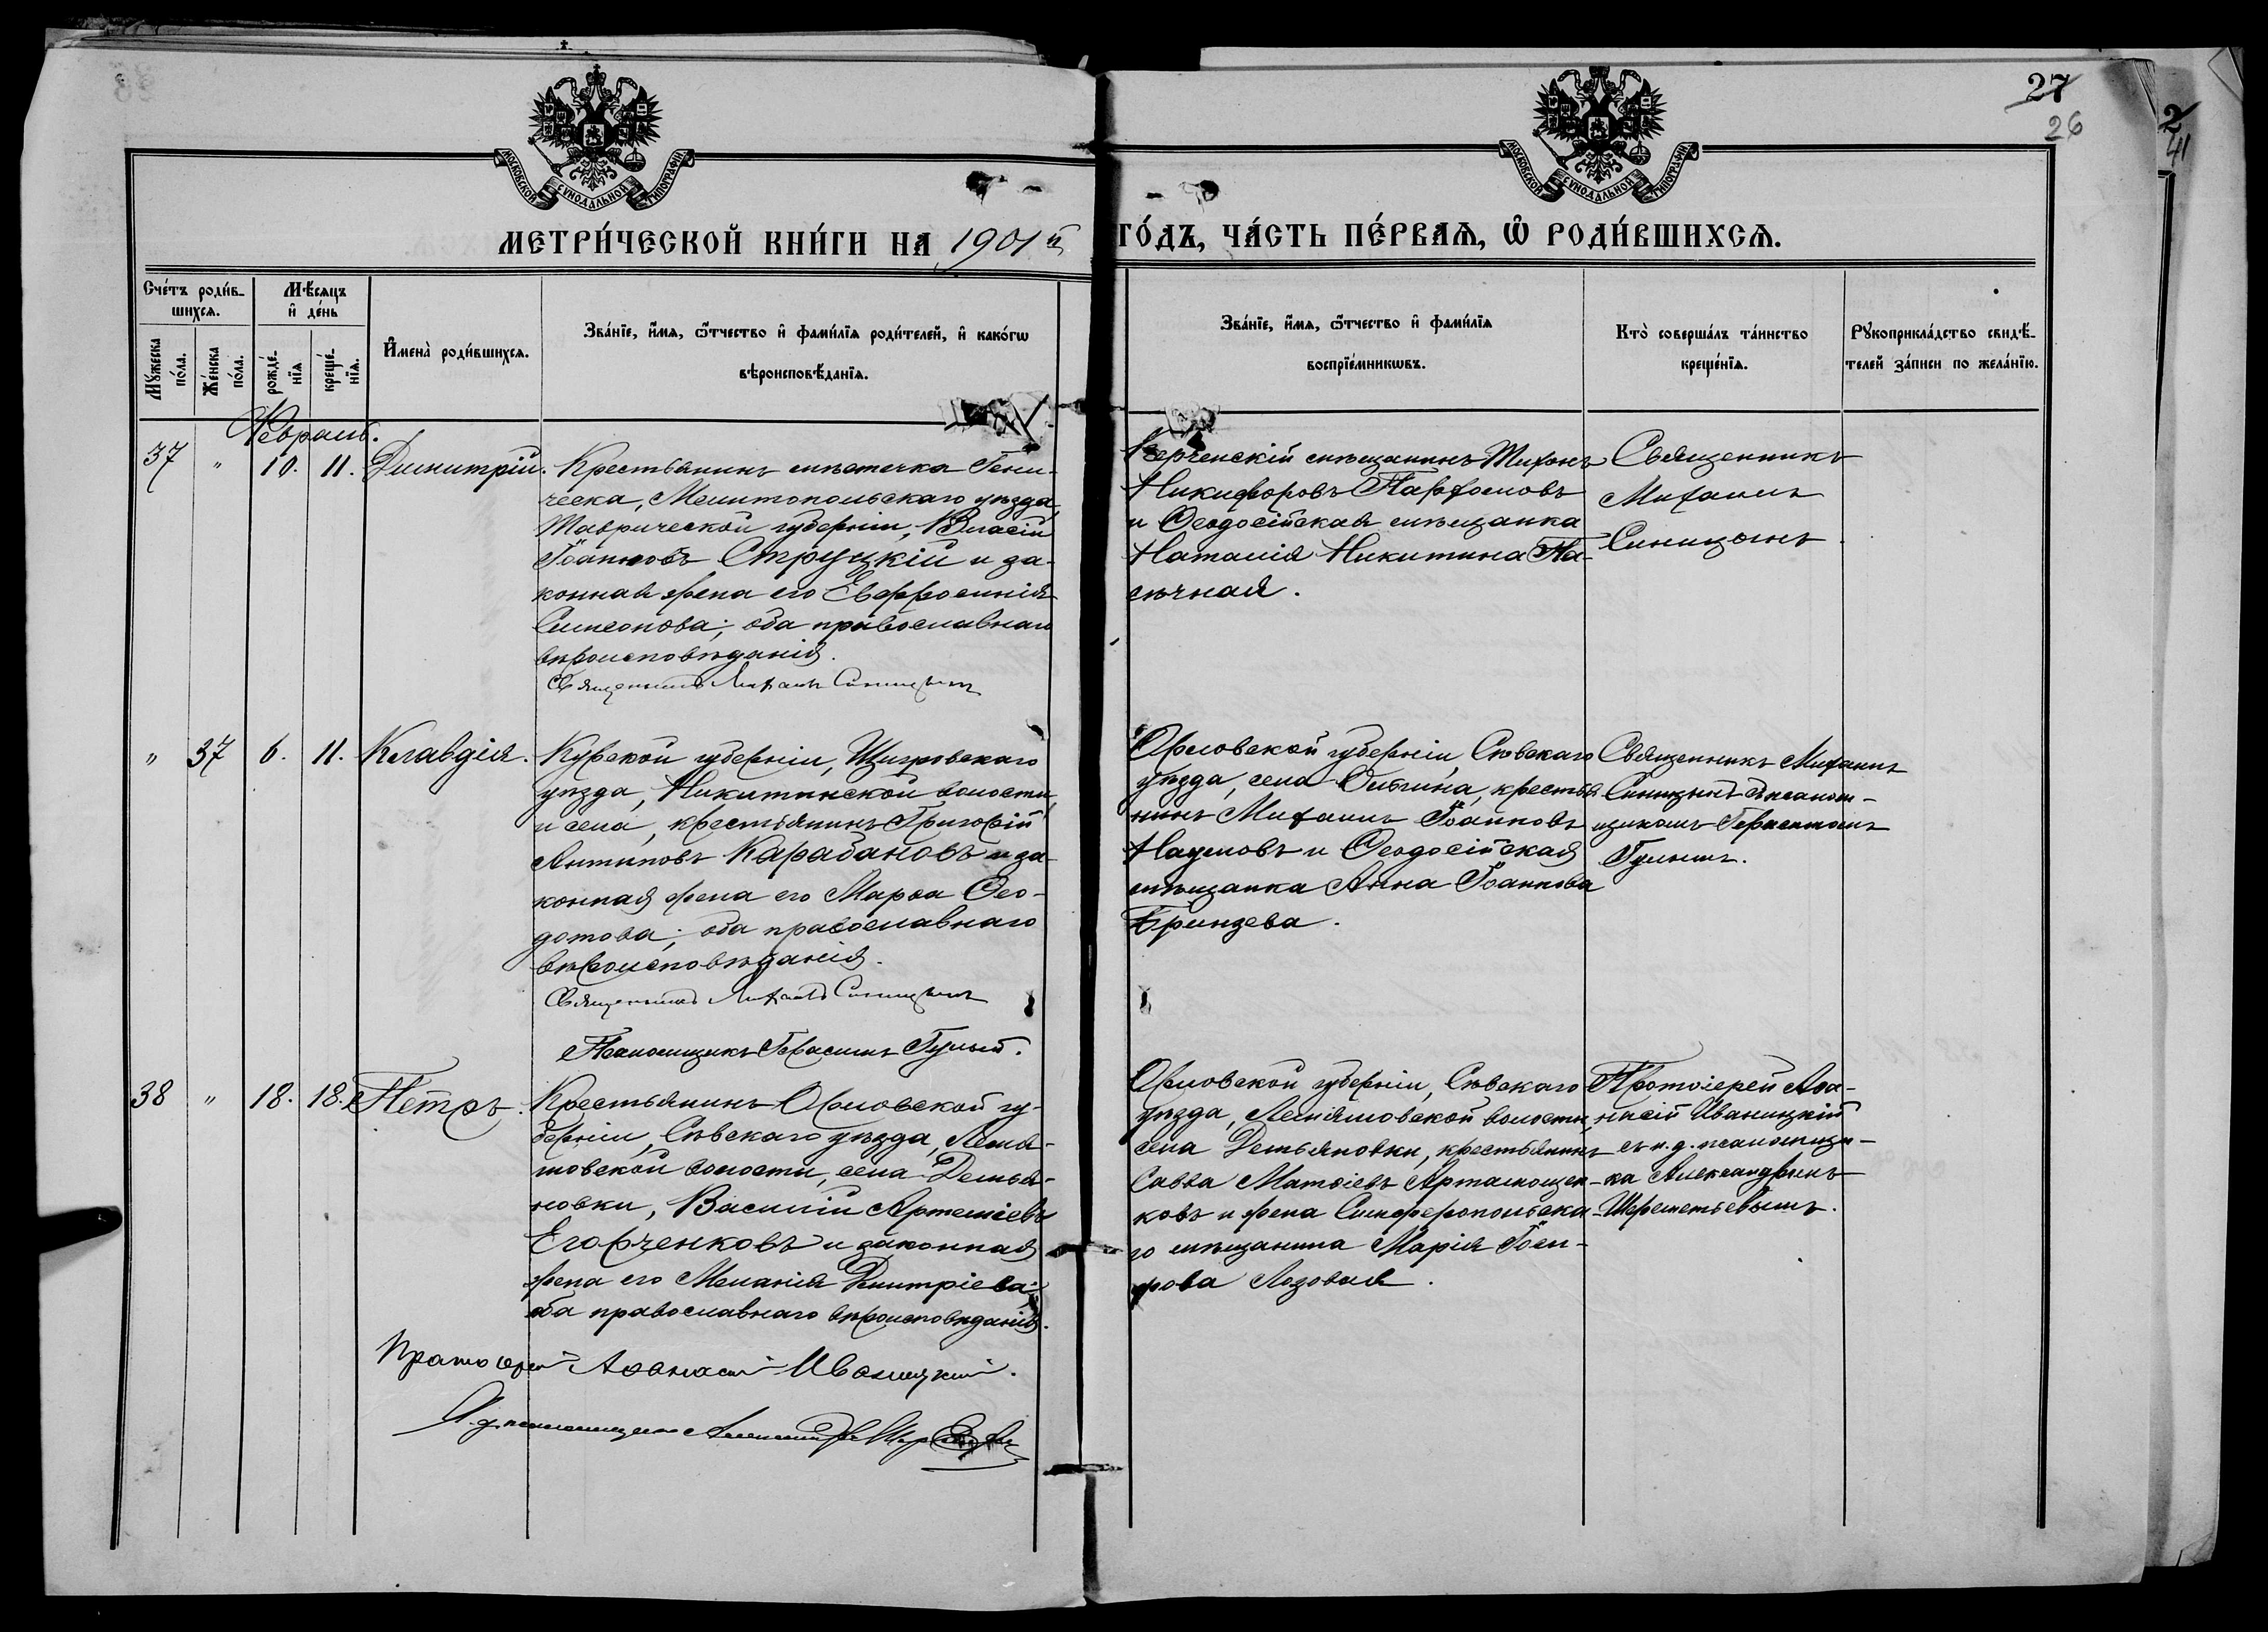 27
26
2
41
МОСКОВСКОЙ СѴНОДАЛЬНОЙ ТИПОГРАФІИ
МОСКОВСКОЙ СѴНОДАЛЬНОЙ ТИПОГРАФІИ
МЕТРИ́ЧЕСКОЙ КНИ́ГИ НА 1901й ГО́ДЪ, ЧА́СТЬ ПЕ́РВАѦ, Ѽ РОДИ́ВШИХСѦ.
Сче́тъ роди́в-
шихсѧ.
Мꙋжеска
по́ла.
Же́нска
по́ла.
Мѣ́сѧцъ
и҆ де́нь
рожде́-
нїѧ
креще́-
нїѧ.
И҆мена̀ роди́вшихсѧ.
Зва́нїе, и҆́мѧ, ѻ҆́тчество и҆ фами́лїѧ роди́телей, и҆ како́гѡ
вѣроисповѣ́данїѧ.
Зва́нїе, и҆́мѧ, ѻ҆́тчество и҆ фами́лїѧ
воспрїе́мникѡвъ.
Кто̀ соверша́лъ та́инство
креще́нїѧ.
Рꙋкоприкла́дство свидѣ́-
телей за́писи по жела́нїю.
Февраль.
37 " 10. 11. Димитрій.
Крестьянинъ мѣстечка Гени-
ческа, Мелитопольскаго уѣзда,
Таврической губерніи, Власій
Іоанновъ Струцкій и за-
конная жена его Евфросинія
Симеонова; оба православнаго
вѣроисповѣданія.
Священникъ Михаилъ Синицынъ
Керченскій мѣщанинъ Тихонъ
Никифоровъ Парфомовъ
и Ѳеодосійская мѣщанка
Наталія Никитина Па-
сѣчная.
Священникъ
Михаилъ
Синицынъ.
" 37 6. 11. Клавдія.
Курской губерніи, Щигровскаго
уѣзда, Никитинской волости
и села, крестьянинъ Григорій
Антиповъ Карабановъ и за-
конная жена его Марѳа Ѳео-
дотова; оба православнаго
вѣроисповѣданія.
Священникъ Михаилъ Синицынъ
Псаломщикъ Герасимъ Гулый.
Орловской губерніи, Сѣвскаго
уѣзда, села Ольгина, крестья
нинъ Михаилъ Іоанновъ
Наумовъ и Ѳеодосійская
мѣщанка Анна Іоаннова
Бринзева.
Священникъ Михаилъ
Синицынъ съ псалом-
щикомъ Герасимомъ
Гулымъ.
38 " 18. 18. Петръ.
Крестьянинъ Орловской гу-
берніи, Сѣвскаго уѣзда, Лемя-
шовской волости, села Демья-
новки, Василій Артеміевъ
Егорченковъ и законная
жена его Меланія Димитріева;
оба православнаго вѣроисповѣданія.
Протоіерей Аѳанасій Иваницкій.
И. д. псаломщика Александръ
Орловской губерніи, Сѣвскаго
уѣзда, Лемяшовской волости,
села Демьяновки, крестьянинъ
Савва Матѳіевъ Артамощен-
ковъ и жена Симферопольска-
го мѣщанина Марія Іоси-
фова Лозовая.
Протоіерей Аѳа-
насій Иваницкій
съ и. д. псаломщи-
ка Александромъ
Шереметьевымъ.